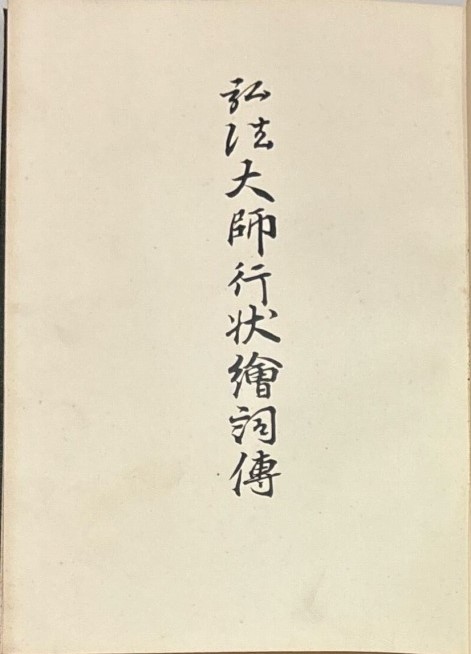 弘法大師行状繪詞傳